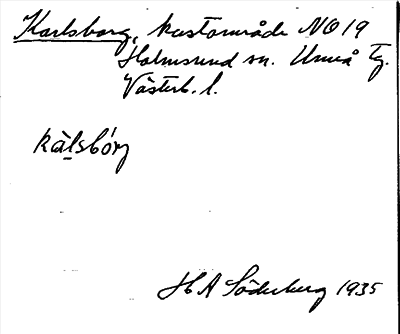 Karlsborg, kustområde NO 19
Holmsund sn. Umeå Tg.
Västerb. l.
kàlsbórg
H A Söderberg 1935